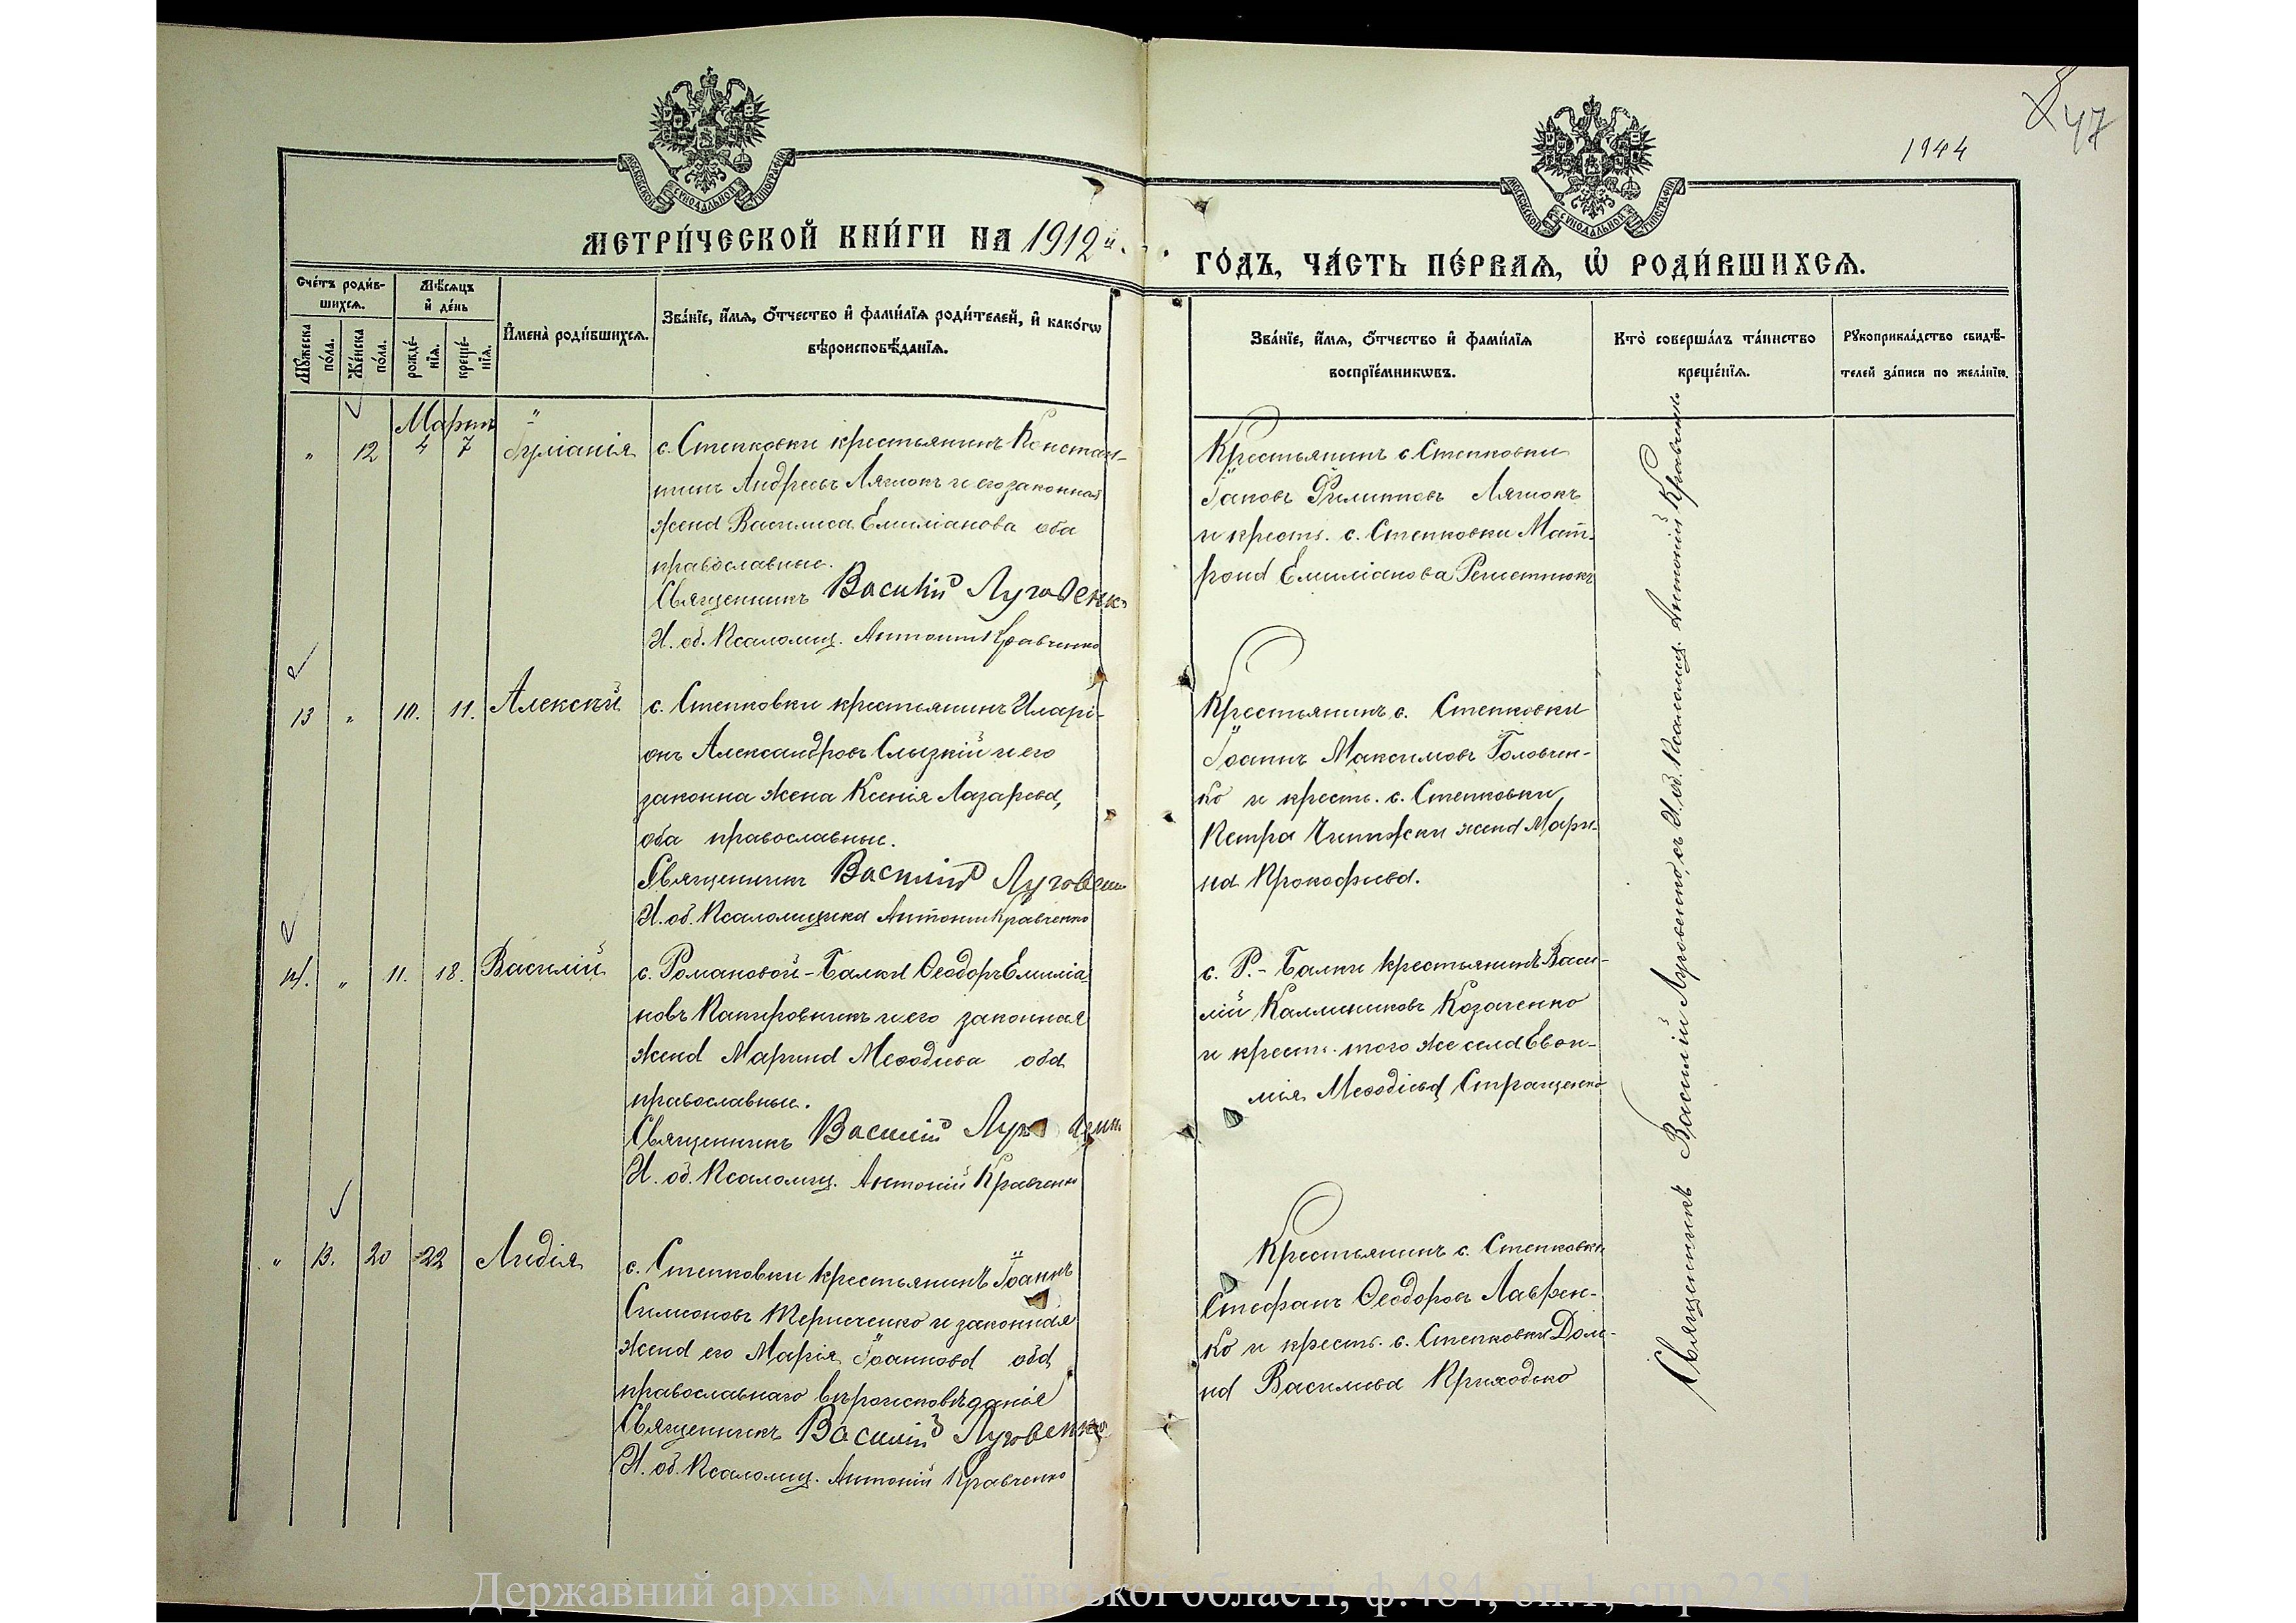 47
1944
МОСКОВСКОЙ СѴНОДАЛЬНОЙ ТИПОГРАФІИ
МОСКОВСКОЙ СѴНОДАЛЬНОЙ ТИПОГРАФІИ
МЕТРИ́ЧЕСКОЙ КНИ́ГИ НА 1912й.
ГО́ДЪ, ЧА́СТЬ ПЕ́РВАѦ, Ѽ РОДИ́ВШИХСѦ.
Сче́тъ роди́в-
шихсѧ.
Мꙋ́жеска по́ла.
Же́нска по́ла.
Мѣ́сяцъ
и҆ де́нь
рожде́-
нїѧ.
креще́-
нїѧ.
И҆мена̀ роди́вшихсѧ.
Зва́нїе, и҆́мѧ, ѻ҆́тчество и҆ фами́лїѧ роди́телей, и҆ како́гѡ
вѣроисповѣ́данїѧ.
Зва́нїе, и҆́мѧ, ѻ҆́тчество и҆ фами́лїѧ
воспрїе́мникѡвъ.
Кто̀ соверша́лъ та́инство
креще́нїѧ.
Рꙋкоприкла́дство свидѣ́-
телей за́писи по жела́нїю.
Мартъ
" 12 4 7 Іуліанія
с. Степковки крестьянинъ Констан-
тинъ Андреевъ Ляшокъ и его законная
жена Василиса Емиліанова оба
православные.
Священникъ Василій Луговенко
И. об. Псаломщ. Антоній Кравченко
Крестьянинъ с. Степковки
Іаковъ Филипповъ Ляшокъ
и крест. с. Степковки Мат-
рона Емиліанова
13 " 10. 11. Алексѣй
с. Степковки крестьянинъ Иларі-
онъ Александровъ Слызкій и его
законна жена Ксенія Лазарева,
оба православные.
Священникъ Василій Луговенко
И. об. Псаломщика Антоній Кравченко
Крестьянинъ с. Степковки
Іоаннъ Максимовъ Головчен-
ко и крест. с. Степковки
Петра жена Мари-
на Прокофьева.
14. " 11. 18. Василій
с. Романовой-Балки Ѳеодоръ Емиліа-
новъ и его законная
жена Марина Меѳодіева оба
православные.
Священникъ Василій
И. об. Псаломщ. Антоній Кравченко
с. Р.-Балки крестьянинъ Васи-
лій Каллиниковъ Козаченко
и крест. того же села Евѳи-
мія Меѳодіева Стращенко
" 13. 20 22 Лидія
с. Степковки крестьянинъ Іоаннъ
Симоновъ и законная
жена его Марія Іоаннова оба
православнаго вѣроисповѣданія
Священникъ Василій Луговенко
И. об. Псаломщ. Антоній Кравченко
Крестьянинъ с. Степковки
Стефанъ Ѳеодоровъ Лаврен-
ко и крест. с. Степковки Дом-
на Васильева Приходько
Священникъ Василій Луговенко, съ И. об. Псаломщ. Антоній Кравченко
Державний архів Миколаївської області, ф.484, оп.1, спр.2251